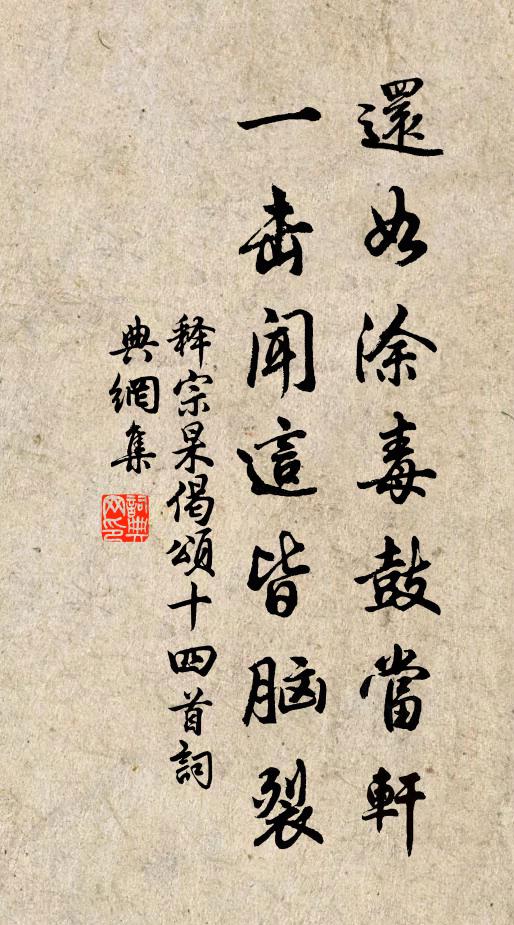 還如涂毒鼓當軒
一击闻這皆脑裂
释宗杲偈頌十四首詞
典網集
詞典
网印